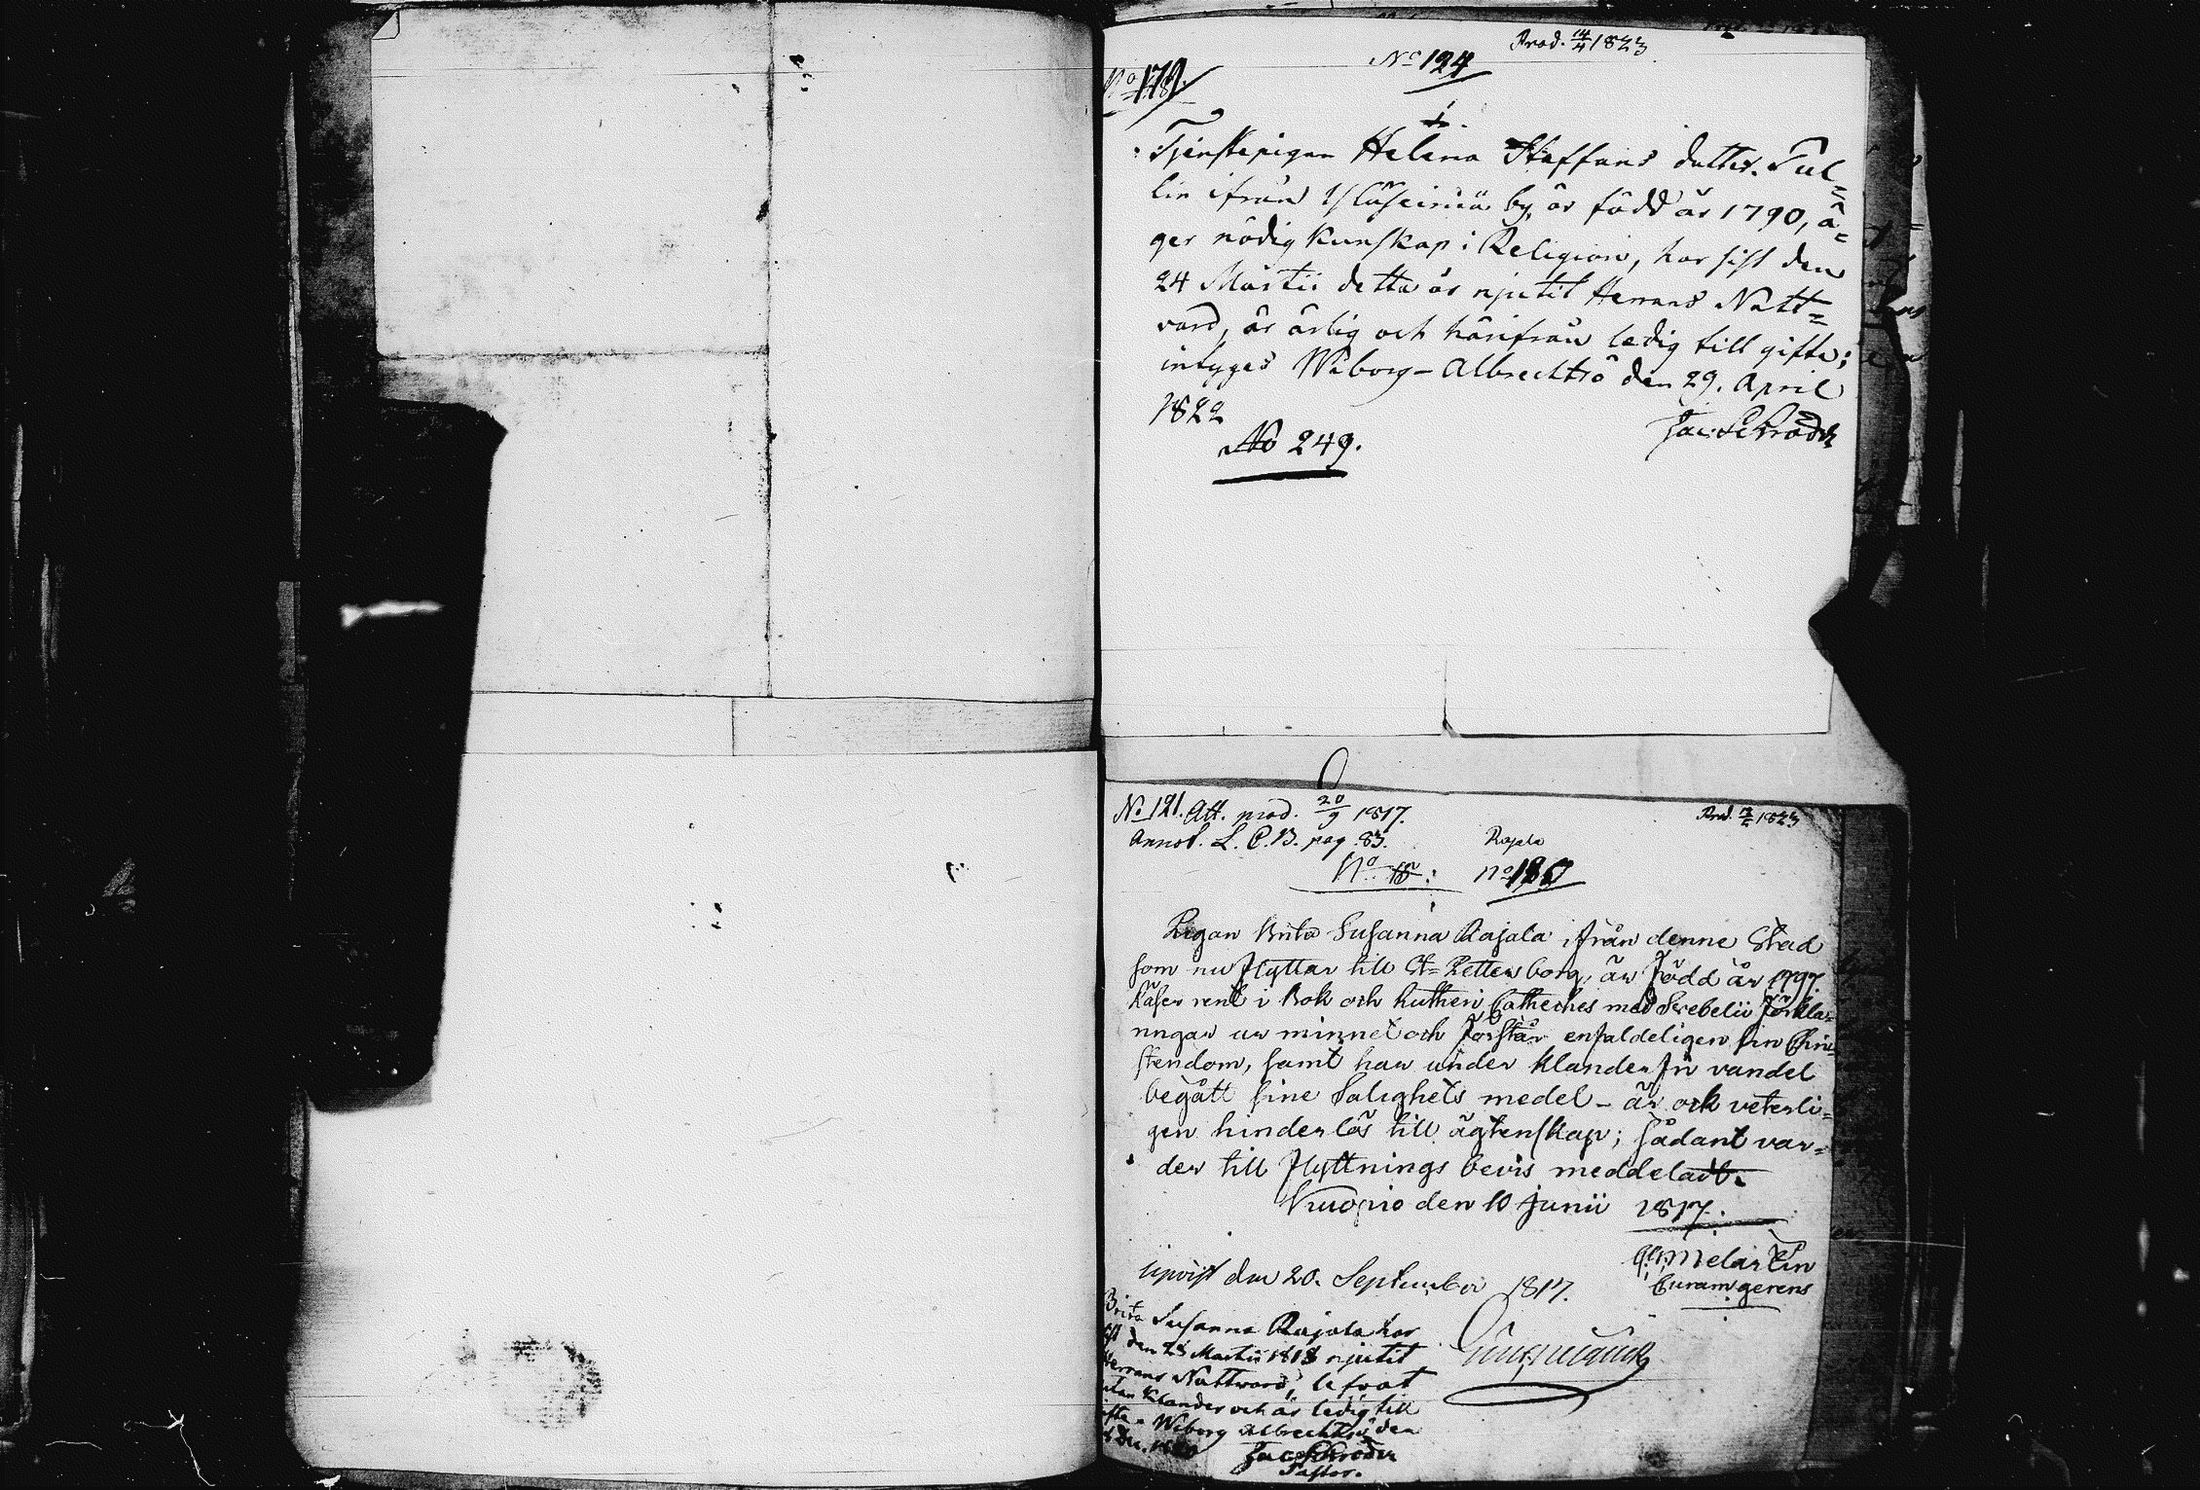 Prod. 14/4 1823
No 124
No 179.
Tjenstepigan Helena Staffans dotter Tul=
lin ifrån by, är född år 1790, ä=
ger nödig kunskap i Religion, har sist den
24 Martii detta år njutit Herrans Natt=
vard, är ärlig och härifrån ledig till gifte;
intyges Wiborg-Albrechtsö den 29. April
1822
Jac: Schröder
No 249.
No 121. Att. prod. 20/9 1817.
Prod. 1823
Annot. L. C. B. pag. 83.
Rajala
No 18: no 180
Pigan Brita Susanna Rajala ifrån denne Stad
som nu flyttar till St= Petersborg, är född år 1797.
Läser rent i Bok och Lutheri Catheches med Svebelii förkla=
ringar ur minnet och förstår enfaldeligen sin Chri=
stendom, samt har under klanderfri vandel
begått sine Salighets medel - är ock veterli=
gen hinderlös till ägtenskap; sådant var=
der till flyttnings bevis meddeladt.
Kuopio den 10 Junii 1817.
Melartin
Curam gerens
Upvist den 20. September 1817.
Brita Susanna Rajala har
sist den 25 Martii 1818 njutit
Herrans Nattvard, lefvat
utan klander och är ledig till
gifte. Wiborg Albrechtsö den
Dec.
Jac Schröder
Pastor.